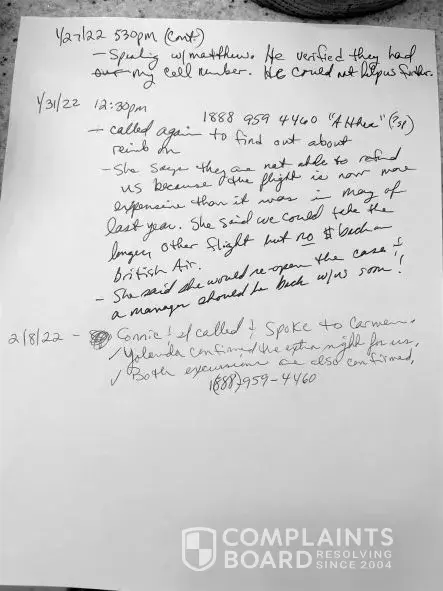 1/27/22 530pm (cont)
- Speaking w/ matthew. He verified they had
my cell number. He could not help us further.
1/31/22 12:30pm
1888 959 4460 "Althea" (?sp)
- called again to find out about
reimb on
- She says they are not able to refund
us because the flight is now more
expensive than it was in may of
last year. She said we could take the
longer, other flight but no $ back on
British Air.
- She said she would re-open the case &
a manager should be back w/us soon!
2/8/22 - Connie & I called & spoke to Carmen.
✓ Yolanda confirmed the extra night for us.
✓ Both excursions are also confirmed.
1(888)959-4460
COMPLAINTS
BOARD RESOLVING
SINCE 2004